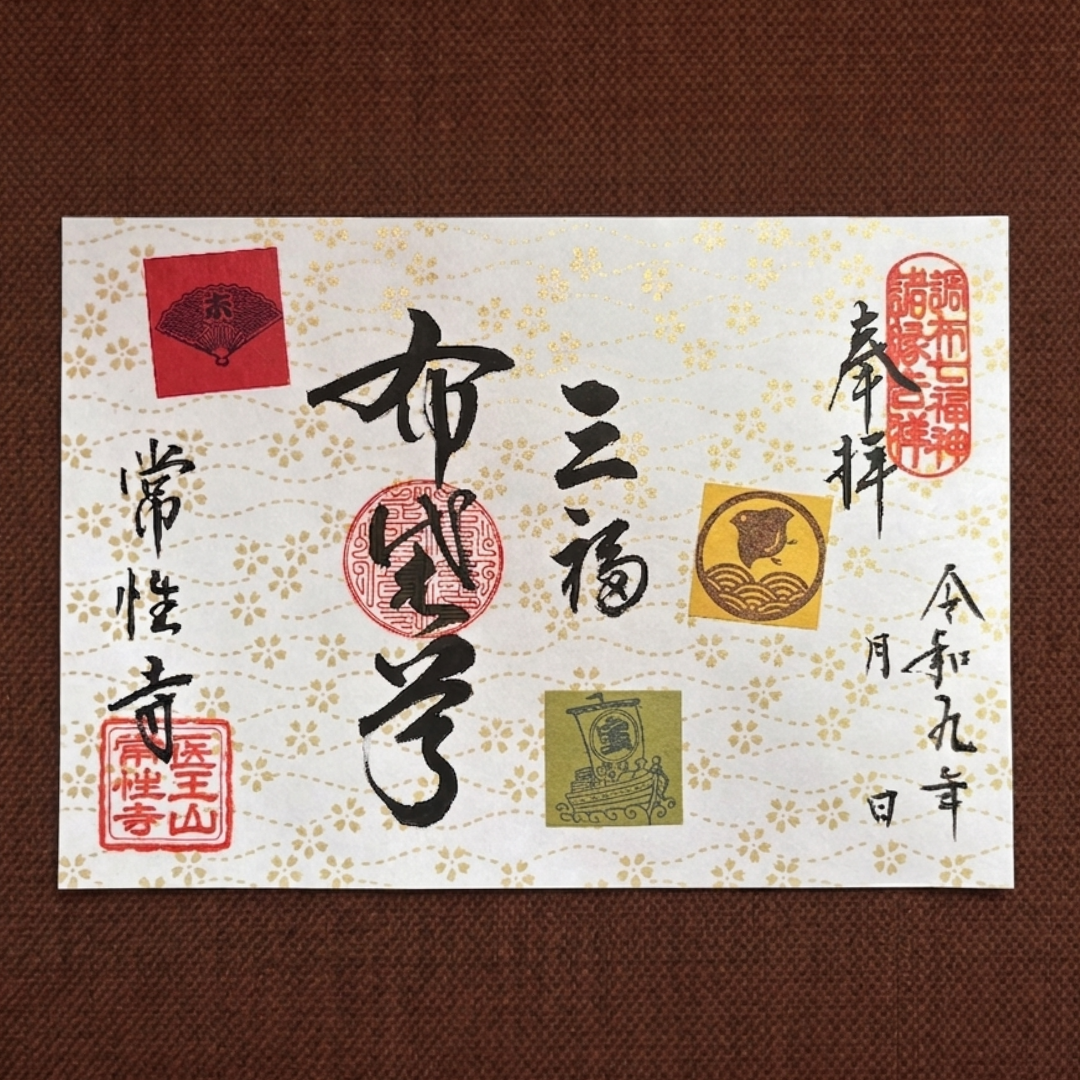 調布七福神
諸縁吉祥
奉拝
令和九年
月　日
三福
布袋尊
未
常性寺
医王山
常性寺